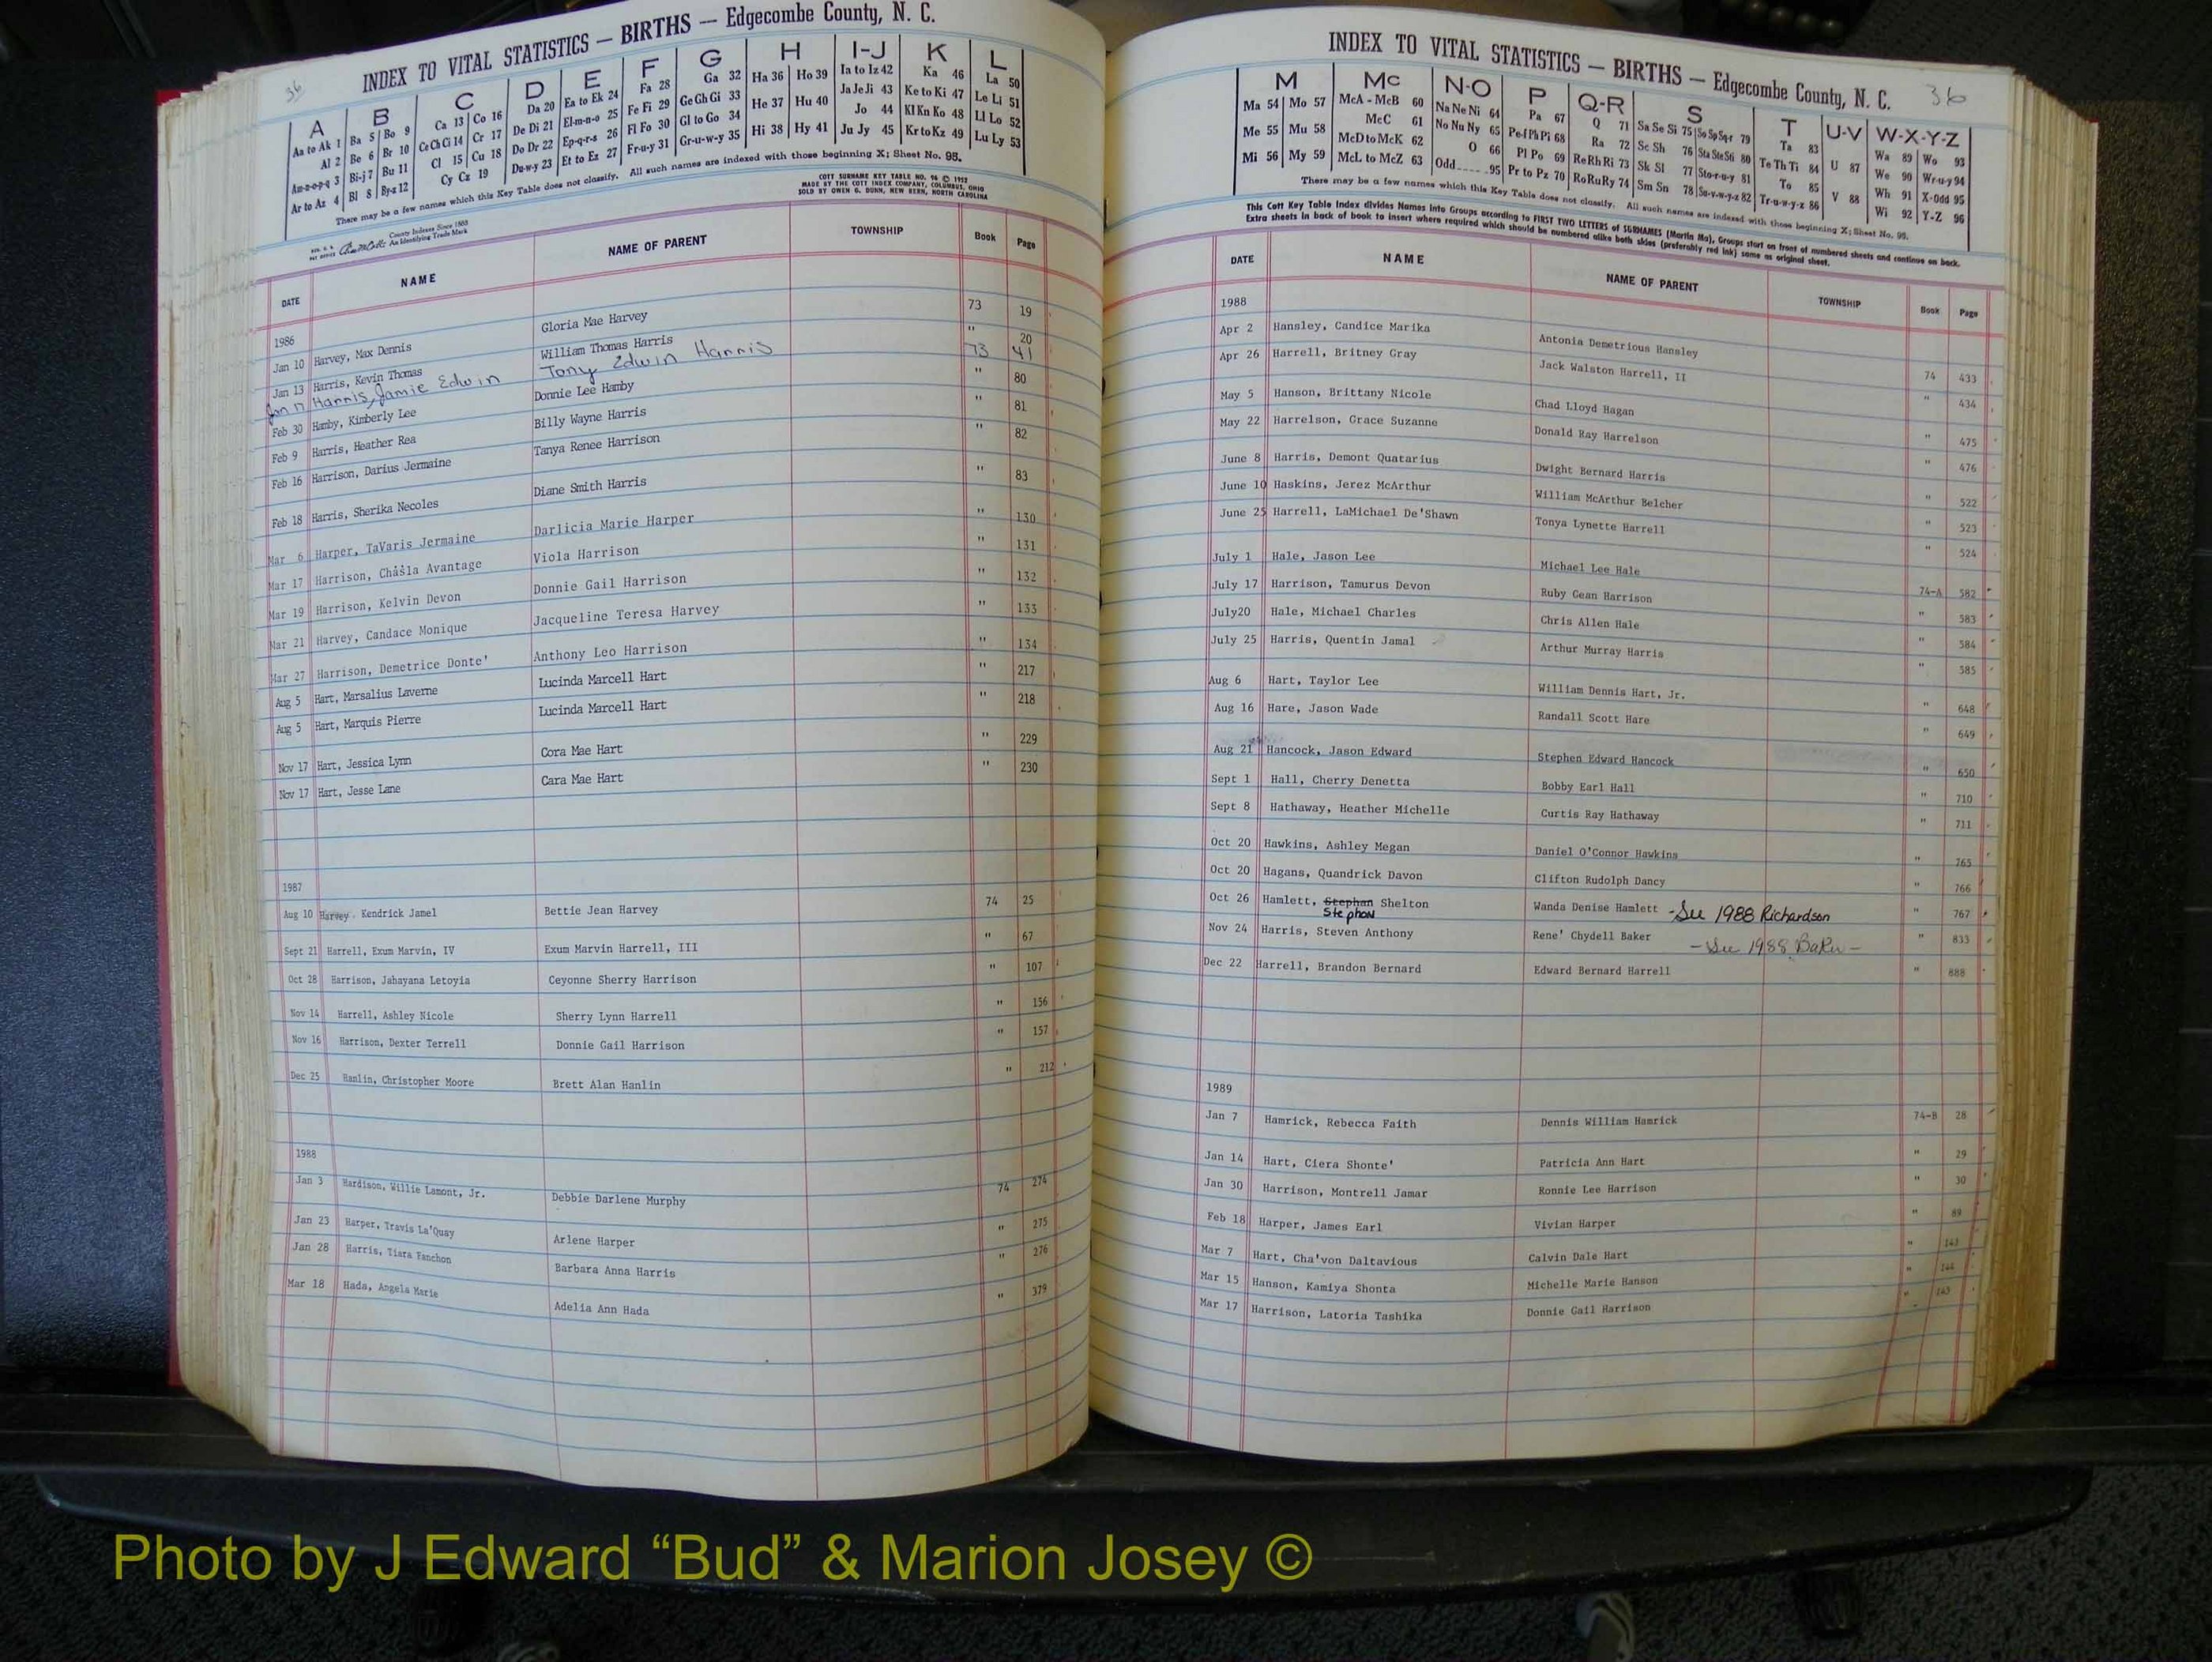 36
INDEX TO VITAL STATISTICS — BIRTHS — Edgecombe County, N. C.
A B C D E F G H I-J K L
Aa to Ak 1 Ba 5 Bo 9 Ca 13 Co 16 Da 20 Ea to Ek 24 Fa 28 Ga 32 Ha 36 Ho 39 Ia to Iz 42 Ka 46 La 50
Al 2 Be 6 Br 10 Ce Ch Ci 14 Cr 17 De Di 21 El-m-n-o 25 Fe Fi 29 Ge Gh Gi 33 He 37 Hu 40 Ja Je Ji 43 Ke to Ki 47 Le Li 51
Am-n-o-p-q 3 Bi-j 7 Bu 11 Cl 15 Cu 18 Do Dr 22 Ep-q-r-s 26 Fl Fo 30 Gl to Go 34 Hi 38 Hy 41 Jo 44 Kl Kn Ko 48 Ll Lo 52
Ar to Az 4 Bl 8 By-z 12 Cy Cz 19 Du-w-y 23 Et to Ez 27 Fr-u-y 31 Gr-u-w-y 35 Ju Jy 45 Kr to Kz 49 Lu Ly 53
There may be a few names which this Key Table does not classify. All such names are indexed with those beginning X; Sheet No. 98.
County Indexes Since 1888
An Identifying Trade Mark
COTT SURNAME KEY TABLE NO. 96 © 1952
MADE BY THE COTT INDEX COMPANY, COLUMBUS, OHIO
SOLD BY OWEN G. DUNN, NEW BERN, NORTH CAROLINA
DATE NAME NAME OF PARENT TOWNSHIP Book Page
1986
Jan 10 Harvey, Max Dennis Gloria Mae Harvey 73 19
Jan 13 Harris, Kevin Thomas William Thomas Harris " 20
Jan 17 Harris, Jamie Edwin Tony Edwin Harris 73 41
Feb 30 Hamby, Kimberly Lee Donnie Lee Hamby " 80
Feb 9 Harris, Heather Rea Billy Wayne Harris " 81
Feb 16 Harrison, Darius Jermaine Tanya Renee Harrison " 82
Feb 18 Harris, Sherika Necoles Diane Smith Harris " 83
Mar 6 Harper, TaVaris Jermaine Darlicia Marie Harper " 130
Mar 17 Harrison, Chasla Avantage Viola Harrison " 131
Mar 19 Harrison, Kelvin Devon Donnie Gail Harrison " 132
Mar 21 Harvey, Candace Monique Jacqueline Teresa Harvey " 133
Mar 27 Harrison, Demetrice Donte' Anthony Leo Harrison " 134
Aug 5 Hart, Marsalius Laverne Lucinda Marcell Hart " 217
Aug 5 Hart, Marquis Pierre Lucinda Marcell Hart " 218
Nov 17 Hart, Jessica Lynn Cora Mae Hart " 229
Nov 17 Hart, Jesse Lane Cara Mae Hart " 230
1987
Aug 10 Harvey. Kendrick Jamel Bettie Jean Harvey 74 25
Sept 21 Harrell, Exum Marvin, IV Exum Marvin Harrell, III " 67
Oct 28 Harrison, Jahayana Letoyia Ceyonne Sherry Harrison " 107
Nov 14 Harrell, Ashley Nicole Sherry Lynn Harrell " 156
Nov 16 Harrison, Dexter Terrell Donnie Gail Harrison " 157
Dec 25 Hanlin, Christopher Moore Brett Alan Hanlin " 212
1988
Jan 3 Hardison, Willie Lamont, Jr. Debbie Darlene Murphy 74 274
Jan 23 Harper, Travis La'Quay Arlene Harper " 275
Jan 28 Harris, Tiara Fanchon Barbara Anna Harris " 276
Mar 18 Hada, Angela Marie Adelia Ann Hada " 379
INDEX TO VITAL STATISTICS — BIRTHS — Edgecombe County, N. C. 36
M Mc N-O P Q-R S T U-V W-X-Y-Z
Ma 54 Mo 57 McA - McB 60 Na Ne Ni 64 Pa 67 Q 71 Sa Se Si 75 So Sp Sq-r 79 Ta 83 Wa 89 Wo 93
Me 55 Mu 58 McC 61 No Nu Ny 65 Pe-f Ph Pi 68 Ra 72 Sc Sh 76 Sta Ste Sti 80 Te Th Ti 84 U 87 We 90 Wr-u-y 94
Mi 56 My 59 McD to McK 62 O 66 Pl Po 69 Re Rh Ri 73 Sk Sl 77 Sto-r-u-y 81 To 85 V 88 Wh 91 X-Odd 95
McL to McZ 63 Odd 95 Pr to Pz 70 Ro Ru Ry 74 Sm Sn 78 Su-v-w-y-z 82 Tr-u-w-y-z 86 Wi 92 Y-Z 96
There may be a few names which this Key Table does not classify. All such names are indexed with those beginning X; Sheet No. 98.
This Cott Key Table Index divides Names into Groups according to FIRST TWO LETTERS of SURNAMES (Martin Ma), Groups start on front of numbered sheets and continue on back.
Extra sheets in back of book to insert where required which should be numbered alike both sides (preferably red ink) same as original sheet.
DATE NAME NAME OF PARENT TOWNSHIP Book Page
1988
Apr 2 Hansley, Candice Marika Antonia Demetrious Hansley 74 433
Apr 26 Harrell, Britney Gray Jack Walston Harrell, II " 434
May 5 Hanson, Brittany Nicole Chad Lloyd Hagan " 475
May 22 Harrelson, Grace Suzanne Donald Ray Harrelson " 476
June 8 Harris, Demont Quatarius Dwight Bernard Harris " 522
June 10 Haskins, Jerez McArthur William McArthur Belcher " 523
June 25 Harrell, LaMichael De'Shawn Tonya Lynette Harrell " 524
July 1 Hale, Jason Lee Michael Lee Hale 74-A 582
July 17 Harrison, Tamurus Devon Ruby Gean Harrison " 583
July20 Hale, Michael Charles Chris Allen Hale " 584
July 25 Harris, Quentin Jamal Arthur Murray Harris " 585
Aug 6 Hart, Taylor Lee William Dennis Hart, Jr. " 648
Aug 16 Hare, Jason Wade Randall Scott Hare " 649
Aug 21 Hancock, Jason Edward Stephen Edward Hancock " 650
Sept 1 Hall, Cherry Denetta Bobby Earl Hall " 710
Sept 8 Hathaway, Heather Michelle Curtis Ray Hathaway " 711
Oct 20 Hawkins, Ashley Megan Daniel O'Connor Hawkins " 765
Oct 20 Hagans, Quandrick Davon Clifton Rudolph Dancy " 766
Oct 26 Hamlett, Stephan Shelton Wanda Denise Hamlett - See 1988 Richardson " 767
Stephon
Nov 24 Harris, Steven Anthony Rene' Chydell Baker " 833
- See 1988 Baker -
Dec 22 Harrell, Brandon Bernard Edward Bernard Harrell " 888
1989
Jan 7 Hamrick, Rebecca Faith Dennis William Hamrick 74-B 28
Jan 14 Hart, Ciera Shonte' Patricia Ann Hart " 29
Jan 30 Harrison, Montrell Jamar Ronnie Lee Harrison " 30
Feb 18 Harper, James Earl Vivian Harper " 89
Mar 7 Hart, Cha'von Daltavious Calvin Dale Hart " 143
Mar 15 Hanson, Kamiya Shonta Michelle Marie Hanson " 144
Mar 17 Harrison, Latoria Tashika Donnie Gail Harrison "
Photo by J Edward “Bud” & Marion Josey ©